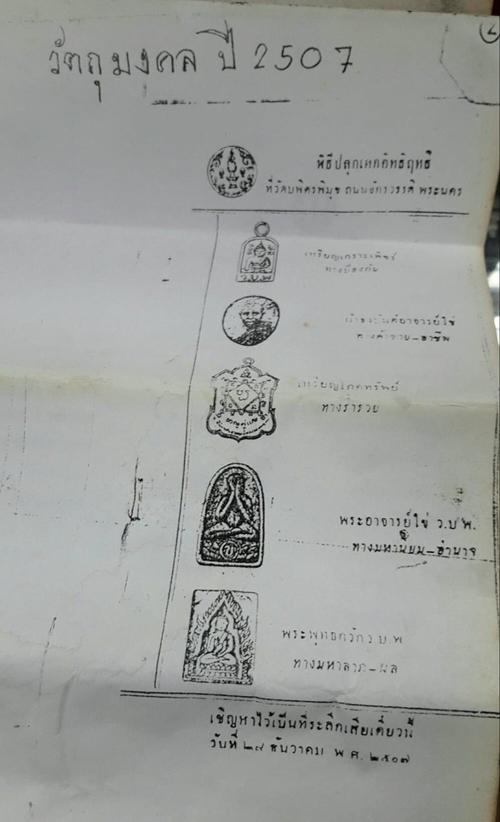 2
วัตถุมงคล ปี 2507
พิธีปลุกเสกอิทธิฤทธิ์
ที่วัดบพิตรพิมุข ถนนจักรวรรดิ พระนคร
ว.บ.พ.
ทางป้องกัน
ทางค้าขาย-อาชีพ
เหรียญโภคทรัพย์
ทางร่ำรวย
พระอาจารย์ไข่ ว.บ.พ.
ทางมหานิยม-อำนาจ
ว.บ.พ.
ทางมหาลาภ-ผล
เชิญหาไว้เป็นที่ระลึกเสียเดี๋ยวนี้
วันที่ ๒๙ ธันวาคม พ.ศ. ๒๕๐๗